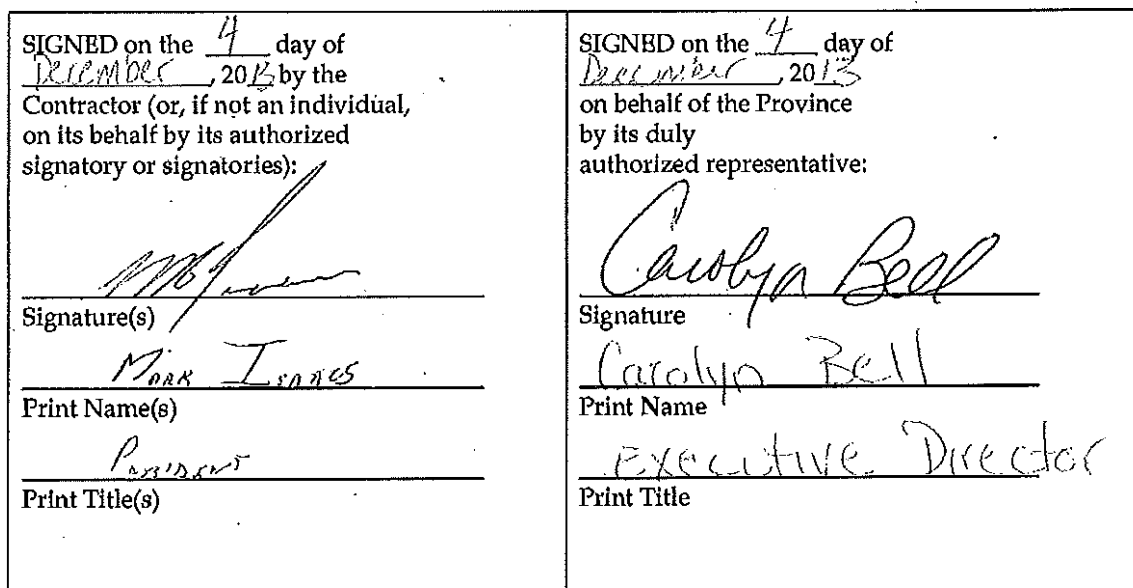 SIGNED on the 4 day of
December, 2013 by the
Contractor (or, if not an individual,
on its behalf by its authorized
signatory or signatories):
Signature(s)
Mark Isaacs
Print Name(s)
President
Print Title(s)
SIGNED on the 4 day of
December, 2013
on behalf of the Province
by its duly
authorized representative:
Carolyn Bell
Signature
Carolyn Bell
Print Name
Executive Director
Print Title